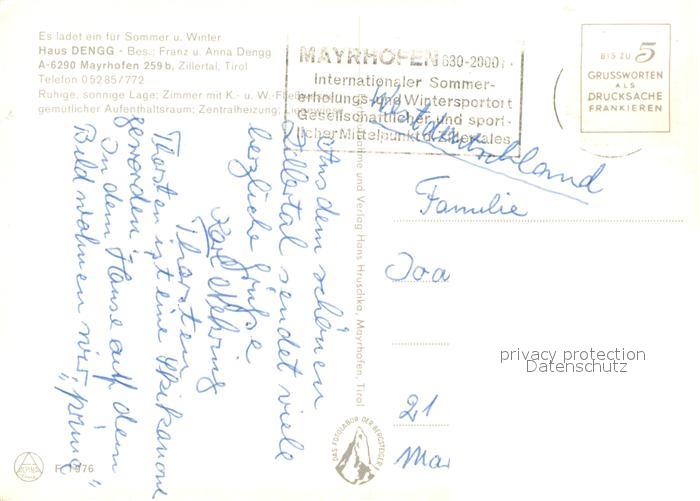 Es ladet ein für Sommer u. Winter
Haus DENGG - Bes.: Franz u. Anna Dengg
A-6290 Mayrhofen 259b, Zillertal, Tirol
Telefon 05285/772
Ruhige, sonnige Lage; Zimmer mit K.- u. W.-Fließ
gemütlicher Aufenthaltsraum; Zentralheizung;
MAYRHOFEN 630-2000
Internationaler Sommer-
erholungs- und Wintersportort
Gesellschaftlicher und sport-
licher Mittelpunkt d. Zillertales
BIS ZU 5
GRUSSWORTEN
ALS
DRUCKSACHE
FRANKIEREN
Westdeutschland
Familie
Joa
21
Mar
privacy protection
Datenschutz
Aus dem schönen
Zillertal sendet viele
herzliche Grüße
Karl Nehring
Thorsten
Thorsten ist eine Skikanone
geworden.
In dem Hause auf dem
Bild wohnen wir, „prima“
Aufnahme und Verlag Hans Hruschka, Mayrhofen, Tirol
DAS FOTOLABOR DER BERGSTEIGER
F 1976